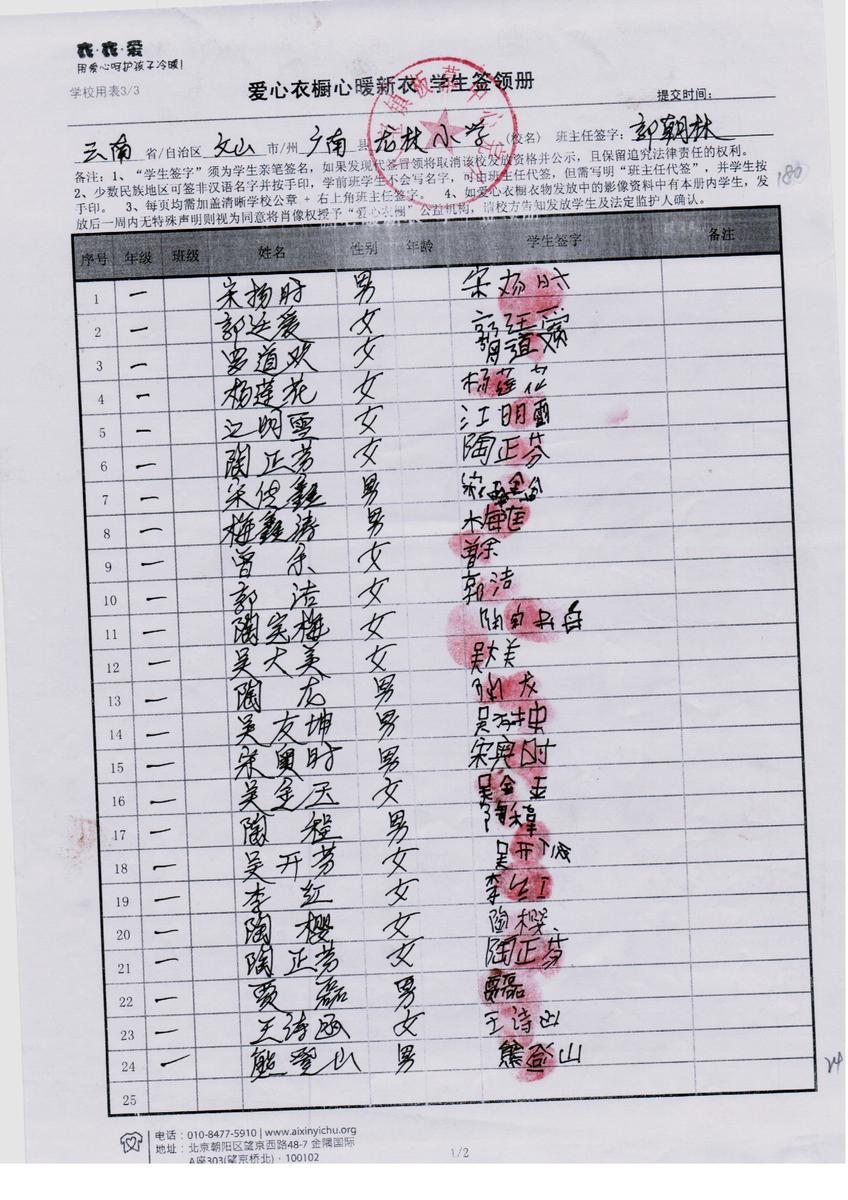 衣·衣·爱
用爱心呵护孩子冷暖!
学校用表3/3
爱心衣橱心暖新衣 学生签领册
提交时间:
云南 省/自治区 文山 市/州 广南 县 龙林小学 (校名) 班主任签字: 郭朝林
备注:1、“学生签字”须为学生亲笔签名,如果发现代签冒领将取消该校发放资格并公示,且保留追究法律责任的权利。
2、少数民族地区可签非汉语名字并按手印,学前班学生不会写名字,可由班主任代签,但需写明“班主任代签”,并学生按
手印。 3、每页均需加盖清晰学校公章 + 右上角班主任签字。 4、如爱心衣橱衣物发放中的影像资料中有本册内学生,发
放后一周内无特殊声明则视为同意将肖像权授予“爱心衣橱”公益机构,请校方告知发放学生及法定监护人确认。
180
序号 年级 班级 姓名 性别 年龄 学生签字 备注
1 一 宋扬时 男 宋扬时
2 一 郭廷爱 女 郭廷爱
3 一 罗道欢 女
4 一 杨莲花 女 杨莲花
5 一 江明雪 女 江明雪
6 一 陶正芬 女 陶正芬
7 一 宋俊鑫 男
8 一 梅鑫涛 男
9 一 曾余 女 曾余
10 一 郭洁 女 郭洁
11 一 陶实梅 女
12 一 吴大美 女 吴大美
13 一 陶龙 男 陶龙
14 一 吴友坤 男
15 一 宋奥时 男 宋奥时
16 一 吴金 女 吴金
17 一 陶程 男
18 一 吴开芬 女 吴开
19 一 李红 女 李红
20 一 陶樱 女 陶樱
21 一 陶正芬 女 陶正芬
22 一 贾磊 男 贾磊
23 一 王诗函 女 王诗函
24 一 熊登山 男 熊登山
25
24
电话:010-8477-5910 | www.aixinyichu.org
地址:北京朝阳区望京西路48-7 金隅国际
A座303(望京桥北)·100102
1/2